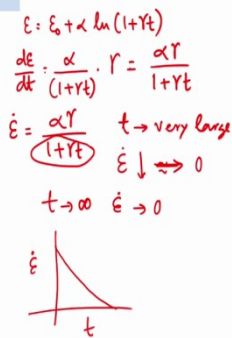 ε = ε₀ + α ln(1+rt)
dε/dt = α/(1+rt) · r = αr/(1+rt)
ε̇ = αr/(1+rt) t → very large
ε̇ ↓ → 0
t → ∞ ε̇ → 0
ε̇
t